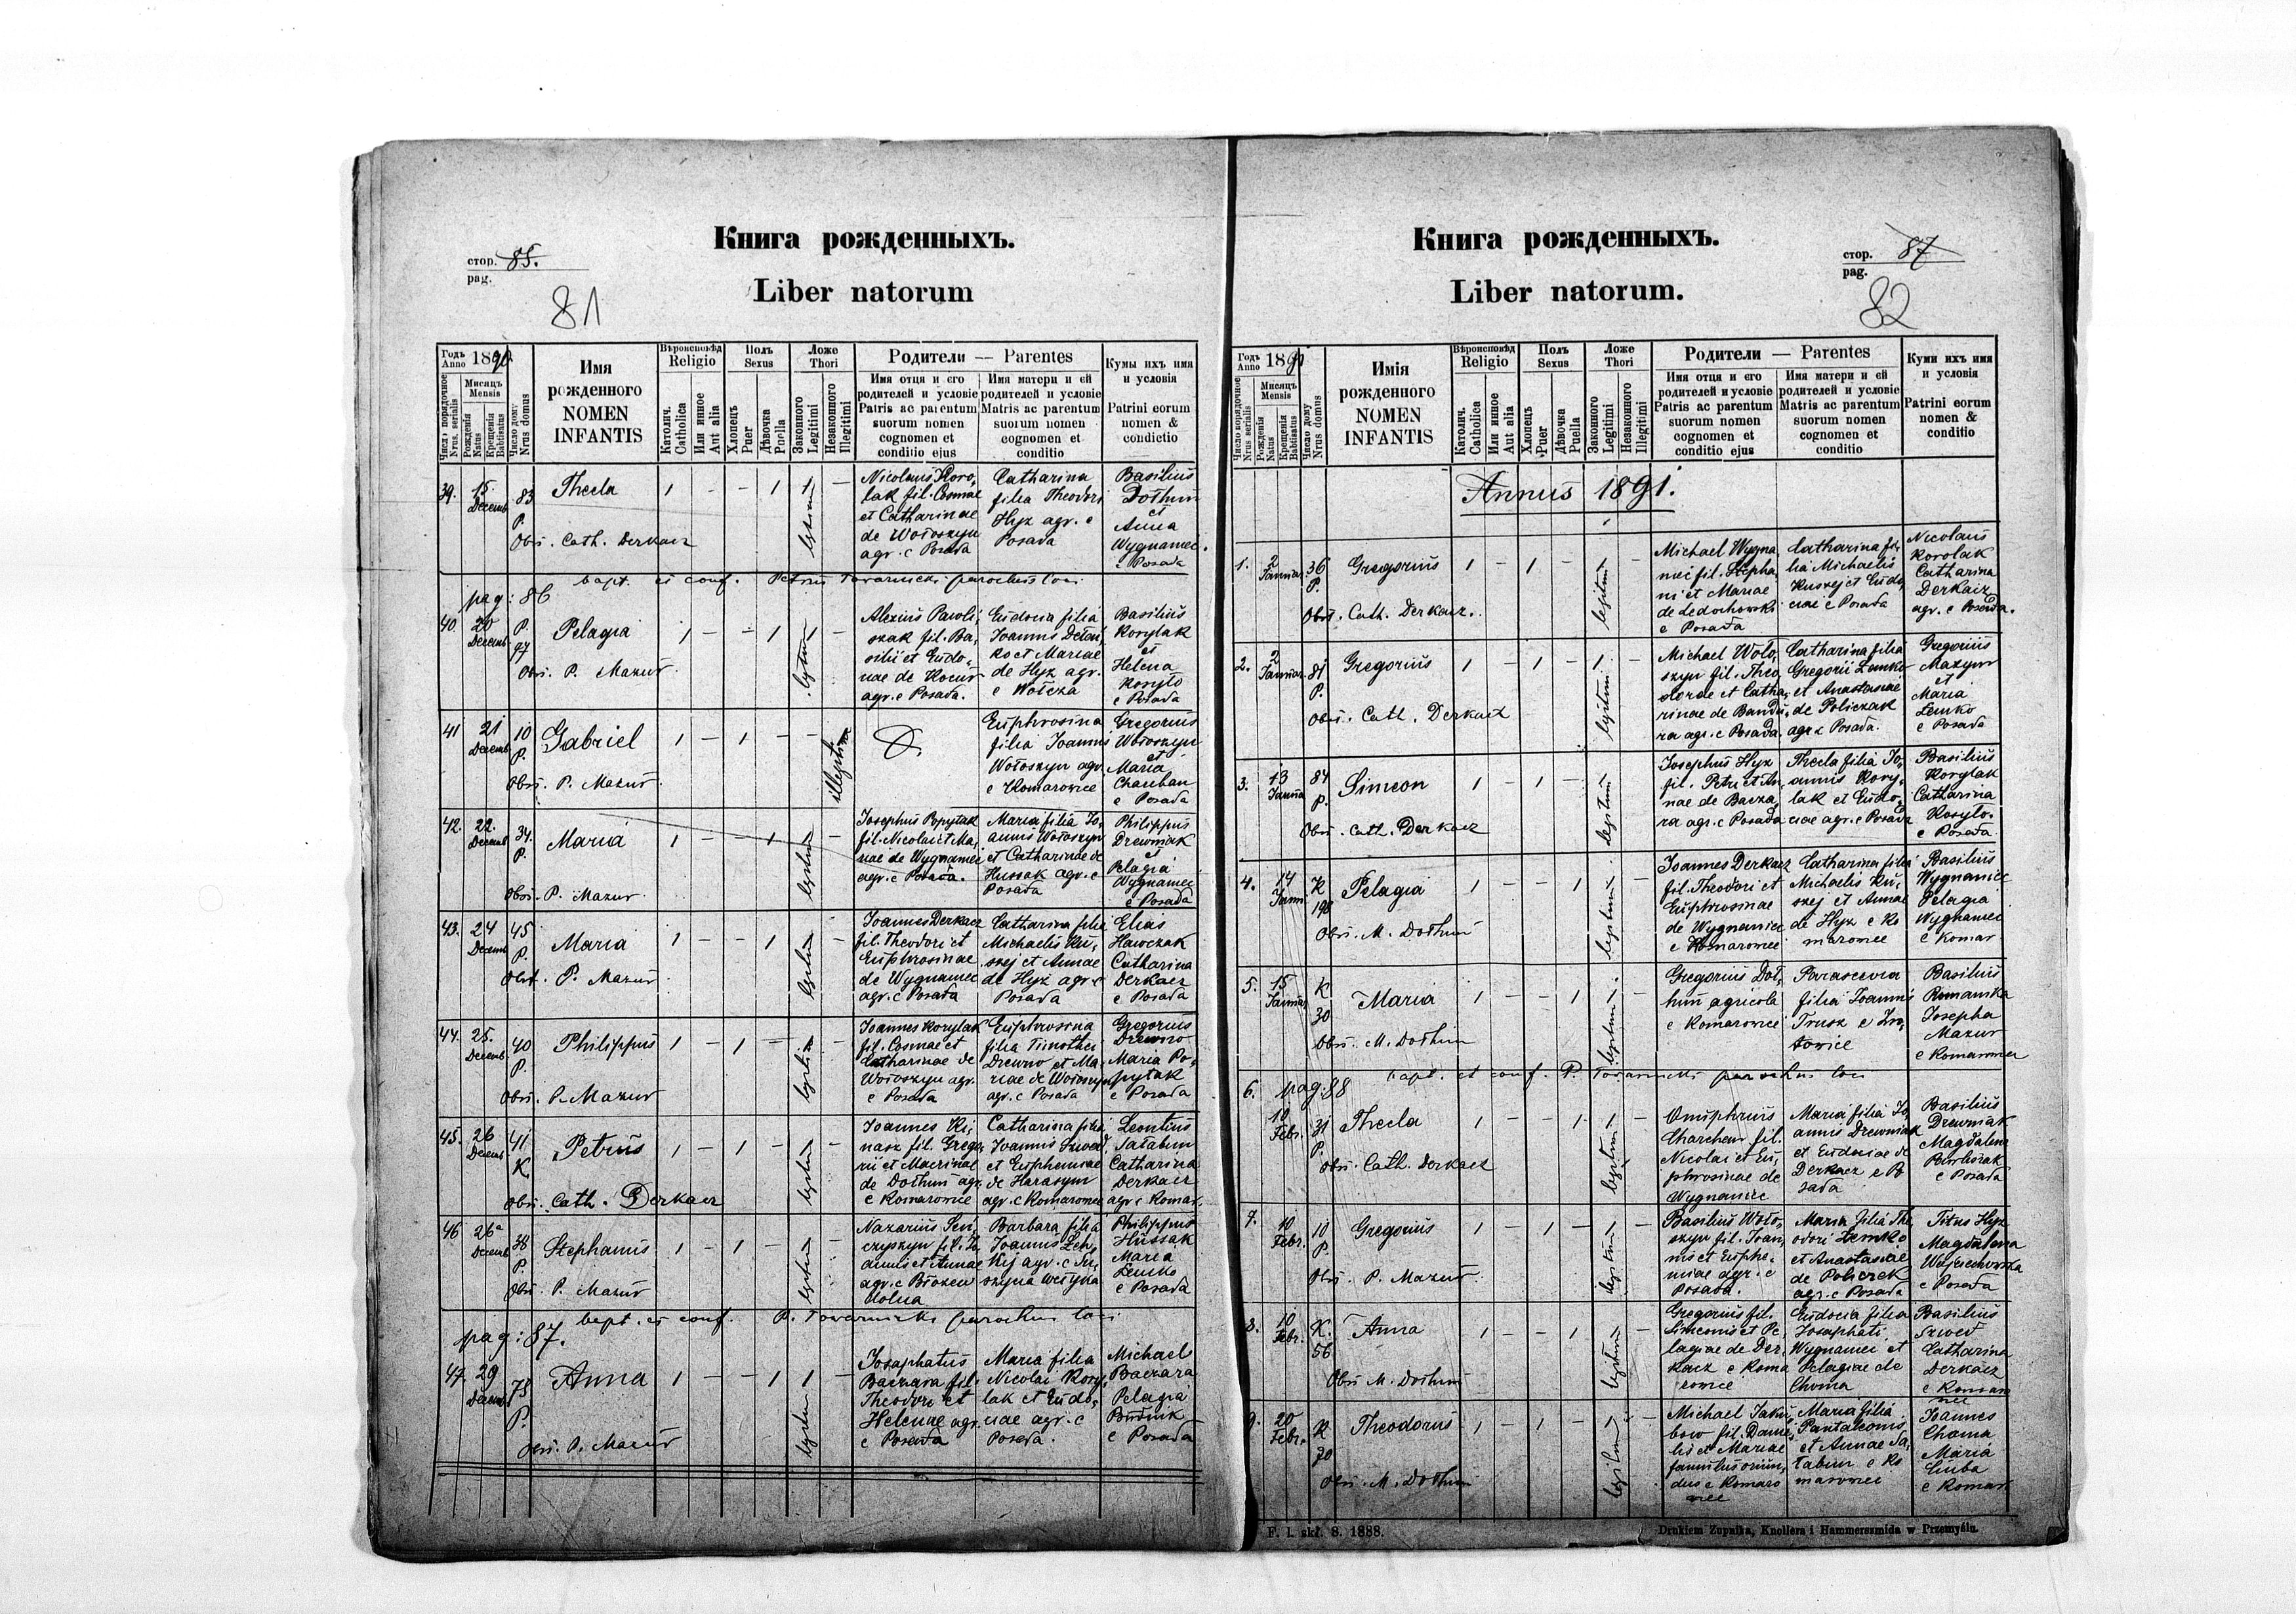 Книга рожденныхъ.
стор. 85.
pag.
81
Liber natorum
Годъ Anno 1890
Число порядочное Nrus serialis
Мисяць Mensis
Рождения Natus
Крещения Babtisatus
Число дому Nrus domus
Имя рожденного
NOMEN INFANTIS
Вѣроисповѣд Religio
Католич. Catholica
Или инное Aut alia
Полъ Sexus
Хлопецъ Puer
Дѣвочка Puella
Ложе Thori
Законного Legitimi
Незаконного Illegitimi
Родители — Parentes
Имя отца и его родителей и условіе
Patris ac parentum suorum nomen cognomen et conditio ejus
Имя матери и ей родителей и условіе
Matris ac parentum suorum nomen cognomen et conditio
Кумы ихъ имя и условія
Patrini eorum nomen & condictio
39. 15. Decemb 83 P. Thecla 1 – – 1 1 –
Nicolaus Koro-
lak fil. Cosmae
et Catharinae
de Wołoszyn
agr. e Posada
Catharina
filia Theodori
Hyz agr. e
Posada
Basilius
Dothun
et
Anna
Wygnaniec
e Posada
Obs. Cath. Derkacz
bapt. et conf. Petrus Towarnicki parochus loci
pag: 86
40. 20 Decemb P. 97 Pelagia 1 – – 1 1 –
Alexius Pawli-
szak fil. Ba-
silii et Eudo-
ciae de Kocur
agr. e Posada.
Eudocia filia
Joannis
et Mariae
de Hyz agr.
e Wołcza
Basilius
Korylak
et
Helena
Koryto
e Posada
Obs. P. Mazur
41 21 Decemb 10 P. Gabriel 1 – 1 – – illegitim
Euphrosina
filia Joannis
Wołoszyn agr.
e Komarowice
Gregorius
Wołoszyn
et
Maria
e Posada
Obs. P. Mazur
42. 22. Decemb 34. P. Maria 1 – – 1
Josephus Popytak
fil. Nicolai et Ma-
riae de Wygnaniec
agr. e Posada.
Maria filia Jo-
annis Wołoszyn
et Catharinae de
Hussak agr. e
Posada
Philippus
Drewniak
et
Pelagia
Wygnaniec
e Posada
Obs. P. Mazur
43. 24 Decemb 45 P. Maria 1 – – 1
Joannes Derkacz
fil. Theodori et
Euphrosinae
de Wygnaniec
agr. e Posada
Catharina filia
Michaelis Ku-
szej et Annae
de Hyz agr. e
Posada
Elias
Hawczak
Catharina
Derkacz
e Posada
Obst. P. Mazur
44. 25. Decemb. 40 P. Philippus 1 – 1 –
Joannes Korylak
fil. Cosmae et
Catharinae de
Wołoszyn agr.
e Posada
Euphrosina
filia Timothei
Drewno et Ma-
riae de Wołoszyn
agr. e Posada
Gregorius
Drewno
Maria Po-
pytak
e Posada
Obs. P. Mazur
45. 26 Decemb 41 K Petrus 1 – 1 –
Joannes Ki-
nasz fil. Grego-
rii et Macrinae
de Dothun agr.
e Komarowice
Catharina filia
Joannis Szwed
et Euphemiae
de Harasym
agr. e Komarowice
Leontius
Tatabun
Catharina
Derkacz
agr. e Komar.
Obs. Cath. Derkacz
46 26 Decemb 38 P. Stephanus 1 – 1 –
Nazarius
fil. Jo-
annis et Annae
agr. e
Barbara filia
Joannis
agr. e
Philippus
Hussak
Maria
Lemko
e Posada
Obs. P. Mazur
bapt. et conf. P. Towarnicki parochus loci
pag: 87.
47 29 Decemb 75 P. Anna 1 – – 1 1 –
Josaphatus
Baczara fil.
Theodori et
Helenae agr.
e Posada
Maria filia
Nicolai Kory-
lak et Eudo-
ciae agr. e
Posada.
Michael
Baczara
Pelagia
Budnik
e Posada
Obs. P. Mazur
Книга рожденныхъ.
стор. 87
pag.
82
Liber natorum.
Годъ Anno 1891
Число порядочное Nrus serialis
Мисяць Mensis
Рождения Natus
Крещения Babtisatus
Число дому Nrus domus
Имія рожденного
NOMEN INFANTIS
Вѣроисповѣд Religio
Католич. Catholica
Или инное Aut alia
Полъ Sexus
Хлопецъ Puer
Дѣвочка Puella
Ложе Thori
Законного Legitimi
Незаконного Illegitimi
Родители — Parentes
Имя отца и его родителей и условіе
Patris ac parentum suorum nomen cognomen et conditio ejus
Имя матери и ей родителей и условіе
Matris ac parentum suorum nomen cognomen et conditio
Куми ихъ имя и условія
Patrini eorum nomen & conditio
Annus 1891.
1. 2 Januar. 36 P. Gregorius 1 – 1 – legitim
Michael Wygna-
niec fil. Stepha-
ni et Mariae
de Ledochowski
e Posada
Catharina fi-
lia Michaelis
Kuszej et Eudo-
ciae e Posada
Nicolaus
Korolak
Catharina
Derkacz
agr. e Posada.
Obst. Cath. Derkacz.
2. 2 Januar. 81 P. Gregorius 1 – 1 – 1 –
Michael Woło-
szyn fil. Theo-
dorae et Catha-
rinae de Bandu-
ra agr. e Posada.
Catharina filia
Gregorii Lemko
et Anastasiae
de Policzak
agr. e Posada.
Gregorius
Mazym
et
Maria
Lemko
e Posada
Obs. Cath. Derkacz
3. 13 Janua 84 P. Simeon 1 – 1 –
Josephus Hyz
fil. Petri et An-
nae de Bacza-
ra agr. e Posada
Thecla filia Jo-
annis Kory-
lak et Eudo-
ciae agr. e Posada
Basilius
Korylak
Catharina
Koryto.
e Posada
Obs. Cath. Derkacz
4. 14 Janu K 198 Pelagia 1 – – 1
Joannes Derkacz
fil. Theodori et
Euphrosinae
de Wygnaniec
e Komarowice
Catharina filia
Michaelis Ku-
szej et Annae
de Hyz e Ko
marowce
Basilius
Wygnaniec
Pelagia
Wygnaniec
e Komar
Obs. M. Dothun
5. 15 Januar K 30 Maria 1 – – 1
Gregorius Dot-
hun agricola
e Komarowice
Parascevia
filia Joannis
Trusz e
Basilius
Romanska
Josepha
Mazur
e Komarowce
Obs. M. Dothun
bapt. et conf. P. Towarnicki parochus loci
6. pag: 88
10 Febr. 31 P. Thecla 1 – – 1 1 –
Onuphrius
fil.
Nicolai et Eu-
phrosinae de
Wygnaniec
Maria filia Jo-
annis Drewniak
et Eudociae de
Derkacz e Po
sada
Basilius
Drewniak
Magdalena
e Posada
Obs. Cath. Derkacz
7. 10 Febr. 10 P. Gregorius 1 – 1 – 1 –
Basilius Woło-
szyn fil. Joan-
nis et Euphe-
miae agr. e
Posada.
Maria filia The-
odori Lemko
et Anastasiae
de Policzek
agr. e Posada
Titus Hyz
Magdalena
Wojciechowska
e Posada
Obs. P. Mazur
8. 10 Febr. K. 56 Anna 1 – – 1
Gregorius fil.
Simeonis et Pe-
lagiae de Der-
kacz e Koma
rowce
Eudocia filia
Josaphati
Wygnaniec et
Pelagiae de
Choma
Basilius
Szwed
Catharina
Derkacz
e Komaro
wce
Obs M. Dothun
9. 20 Febr. K 70 Theodorus 1 – 1 – 1
Michael Jaku-
bow fil. Danie-
lis et Mariae
e Komaro
wce
Maria filia
Pantaleonis
et Annae Ta-
tabun e Ko
marowce
Joannes
Choma
Maria
e Komar
Obs. M. Dothun
F. l. skł. 8. 1888.
Drukiem Żupnika, Knollera i Hammerszmida w Przemyślu.